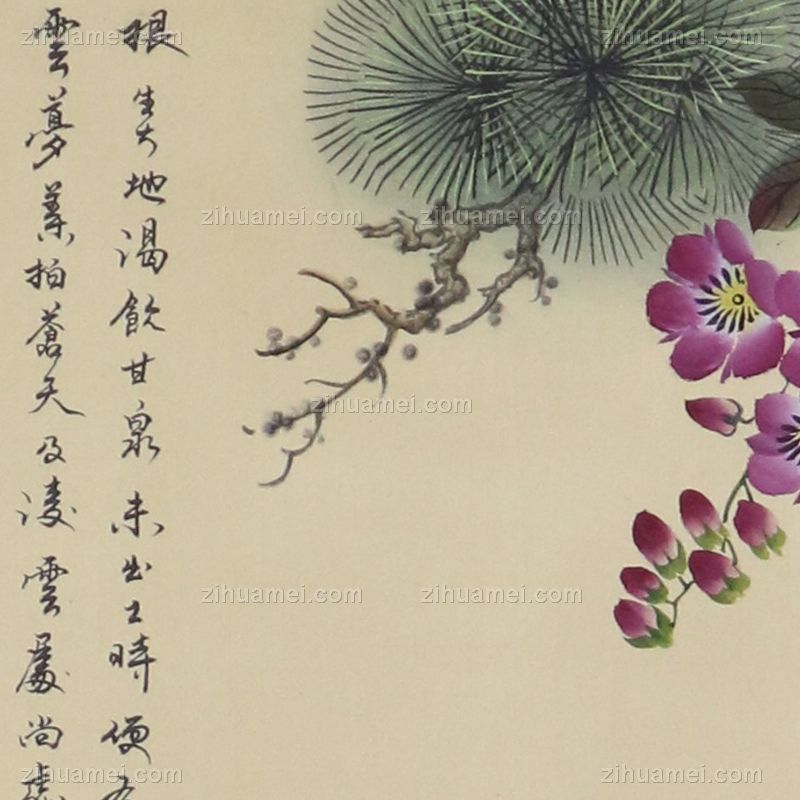 根生大地渴飲甘泉未出土時便
雲夢葉拍蒼天及凌雲處尚
zihuamei.com zihuamei.com zihuamei.com
zihuamei.com zihuamei.com
zihuamei.com
zihuamei.com zihuamei.com
zihuamei.com zihuamei.com zihuamei.com